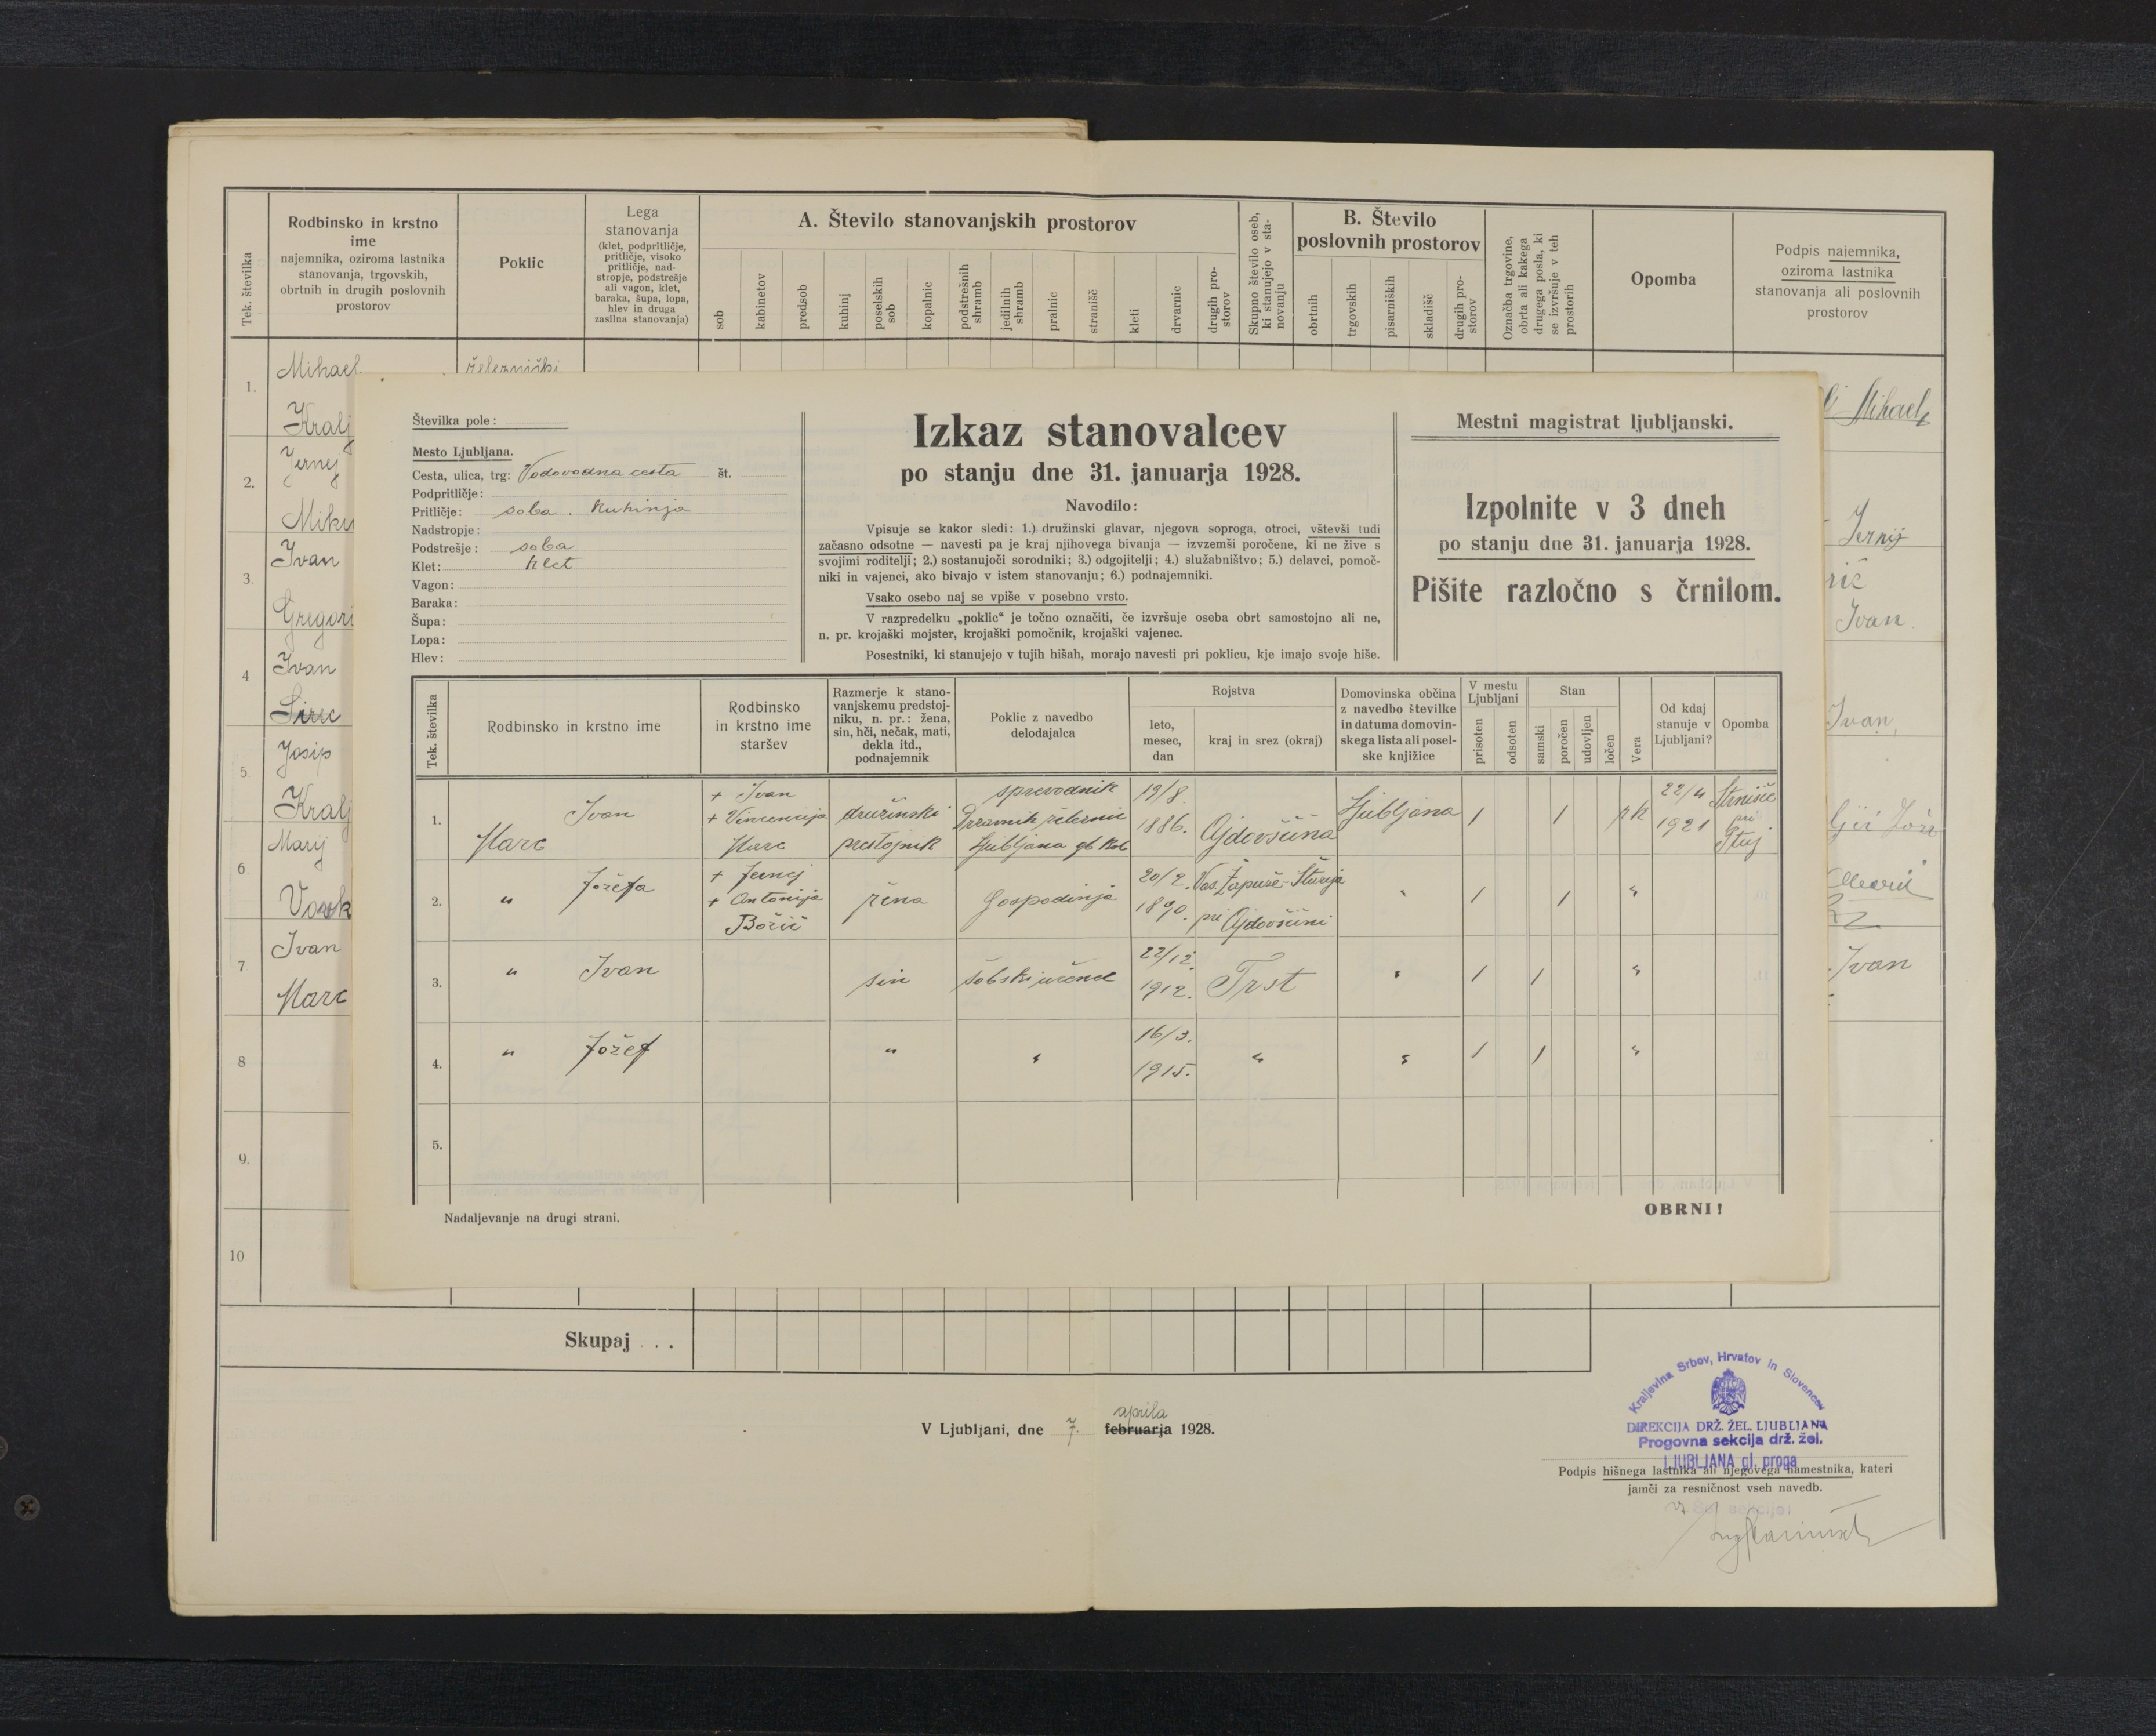 Tek. številka
Rodbinsko in krstno
ime
najemnika, oziroma lastnika
stanovanja, trgovskih,
obrtnih in drugih poslovnih
prostorov
Poklic
Lega
stanovanja
(klet, podpritličje,
pritličje, visoko
pritličje, nad-
stropje, podstrešje
ali vagon, klet,
baraka, šupa, lopa,
hlev in druga
zasilna stanovanja)
A. Število stanovanjskih prostorov
sob
kabinetov
predsob
kuhinj
poselskih
sob
kopalnic
podstrešnih
shramb
jedilnih
shramb
pralnic
stranišč
kleti
drvarnic
drugih pro-
storov
Skupno število oseb,
ki stanujejo v sta-
novanju
B. Število
poslovnih prostorov
obrtnih
trgovskih
pisarniških
skladišč
drugih pro-
storov
Označba trgovine,
obrta ali kakega
drugega posla, ki
se izvršuje v teh
prostorih
Opomba
Podpis najemnika,
oziroma lastnika
stanovanja ali poslovnih
prostorov
1. Mihael železniški
Kralj Mihael
2. Jernej
Jernej
3. Ivan
Ivan
4 Ivan
Sirec Ivan
5 Josip
Kralj
6 Marij
Vovk
7 Ivan Ivan
Marc
8
9.
10
Številka pole:
Mesto Ljubljana.
Cesta, ulica, trg: Vodovodna cesta št.
Podpritličje:
Pritličje: soba. kuhinja
Nadstropje:
Podstrešje: soba
Klet: klet
Vagon:
Baraka:
Šupa:
Lopa:
Hlev:
Izkaz stanovalcev
po stanju dne 31. januarja 1928.
Navodilo:
Vpisuje se kakor sledi: 1.) družinski glavar, njegova soproga, otroci, vštevši tudi
začasno odsotne — navesti pa je kraj njihovega bivanja — izvzemši poročene, ki ne žive s
svojimi roditelji; 2.) sostanujoči sorodniki; 3.) odgojitelji; 4.) služabništvo; 5.) delavci, pomoč-
niki in vajenci, ako bivajo v istem stanovanju; 6.) podnajemniki.
Vsako osebo naj se vpiše v posebno vrsto.
V razpredelku „poklic“ je točno označiti, če izvršuje oseba obrt samostojno ali ne,
n. pr. krojaški mojster, krojaški pomočnik, krojaški vajenec.
Posestniki, ki stanujejo v tujih hišah, morajo navesti pri poklicu, kje imajo svoje hiše.
Mestni magistrat ljubljanski.
Izpolnite v 3 dneh
po stanju dne 31. januarja 1928.
Pišite razločno s črnilom.
Tek. številka
Rodbinsko in krstno ime
Rodbinsko
in krstno ime
staršev
Razmerje k stano-
vanjskemu predstoj-
niku, n. pr.: žena,
sin, hči, nečak, mati,
dekla itd.,
podnajemnik
Poklic z navedbo
delodajalca
Rojstva
leto,
mesec,
dan
kraj in srez (okraj)
Domovinska občina
z navedbo številke
in datuma domovin-
skega lista ali posel-
ske knjižice
V mestu
Ljubljani
prisoten
odsoten
Stan
samski
poročen
udovljen
ločen
Vera
Od kdaj
stanuje v
Ljubljani?
Opomba
1. Marc Ivan
+ Ivan
+ Vincencija
Marc
družinski
sprevodnik
Ljubljana gl. kol
19/8.
1886.
Ajdovščina
Ljubljana / / rk
22/4
1921
Strnišče
pri
Ptuj
2. " Jožefa
+ Jernej
+ Antonija
Božič
žena
Gospodinja
20/2.
1890.
Vas. Žapuže-Šturija
pri Ajdovščini
" / / "
3. " Ivan
sin
22/12.
1912.
Trst
" / / "
4. " Jožef
" "
16/3.
1915.
" " / / "
5.
Nadaljevanje na drugi strani.
OBRNI!
Skupaj . . .
V Ljubljani, dne 7. februarja aprila 1928.
Kraljevina Srbov, Hrvatov in Slovencev
DIREKCIJA DRŽ. ŽEL. LJUBLJANA
Progovna sekcija drž. žel.
LJUBLJANA gl. proga
Podpis hišnega lastnika ali njegovega namestnika, kateri
jamči za resničnost vseh navedb.